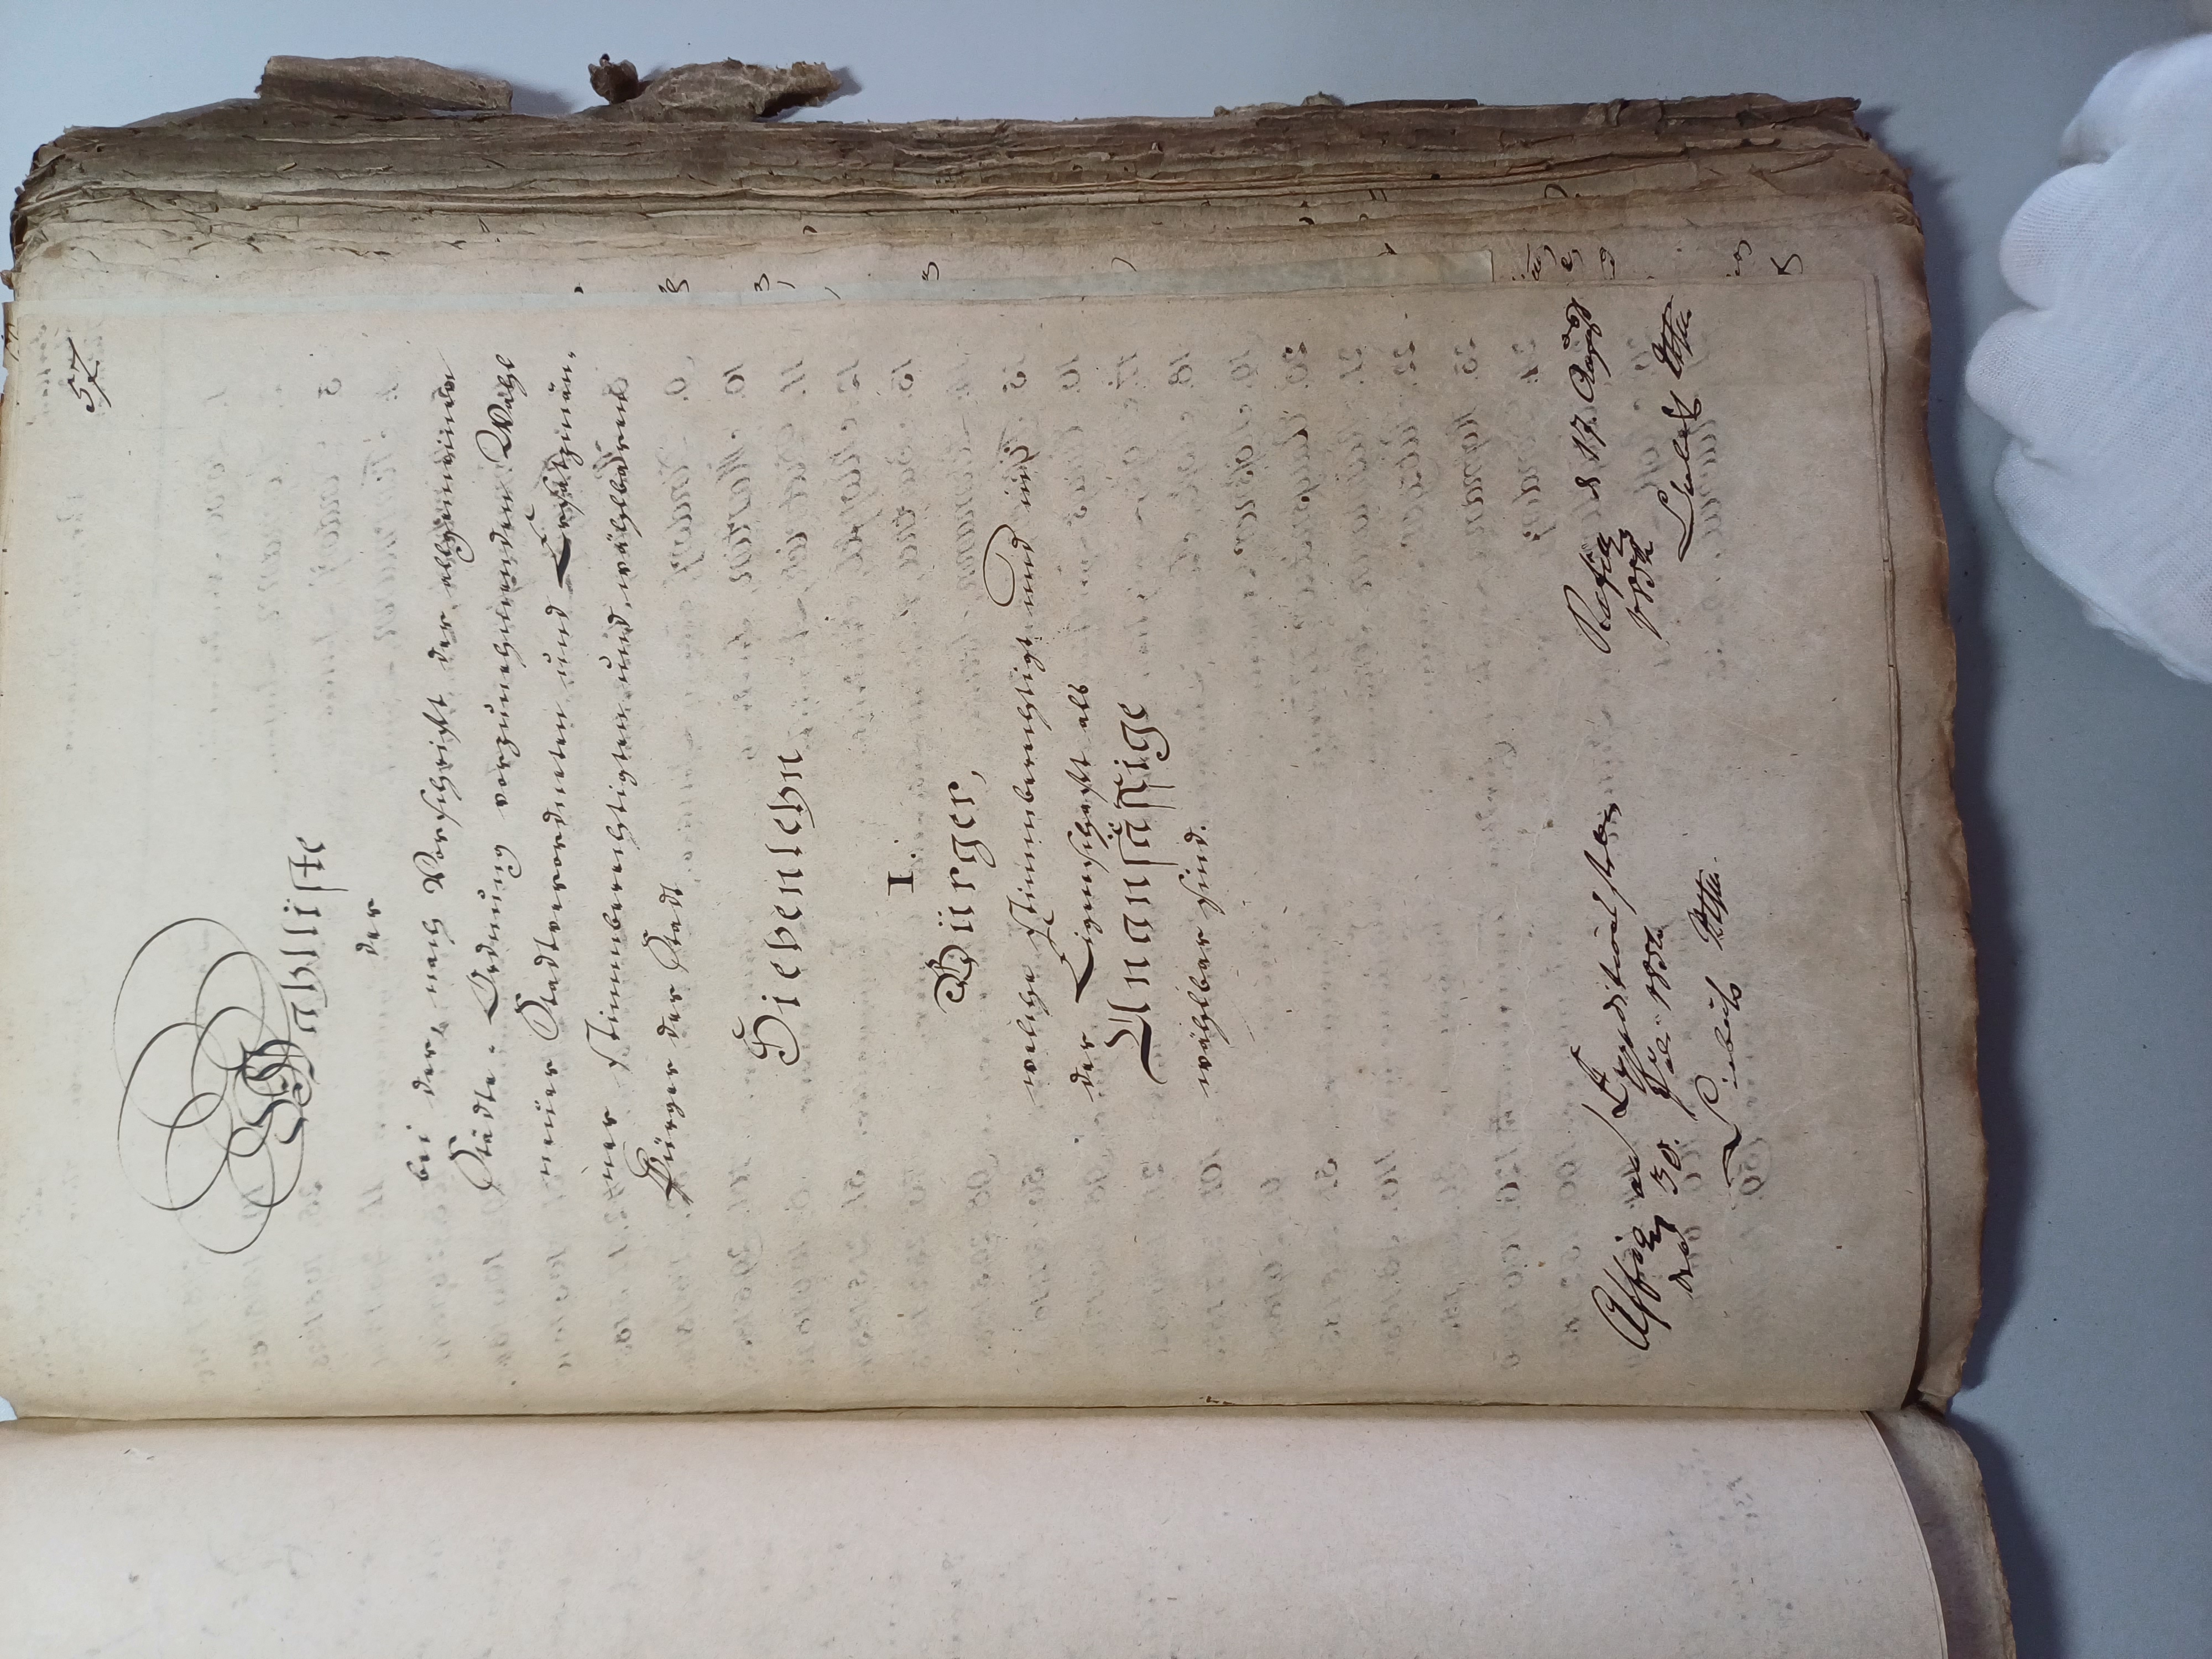 57
Wahlliste
der
bei der, nach Vorschrift der allgemeinen
Städte-Ordnung vorzunehmenden Wahl
neuer Stadtverordneten und Ersatzmän-
ner stimmberechtigten und wählbaren
Bürger der Stadt
Siebenlehn
I.
Bürger,
welche stimmberechtigt und in
der Eigenschaft als
Unansäßige
wählbar sind.
Affig. ad
den 30.
Refig. d 17. August